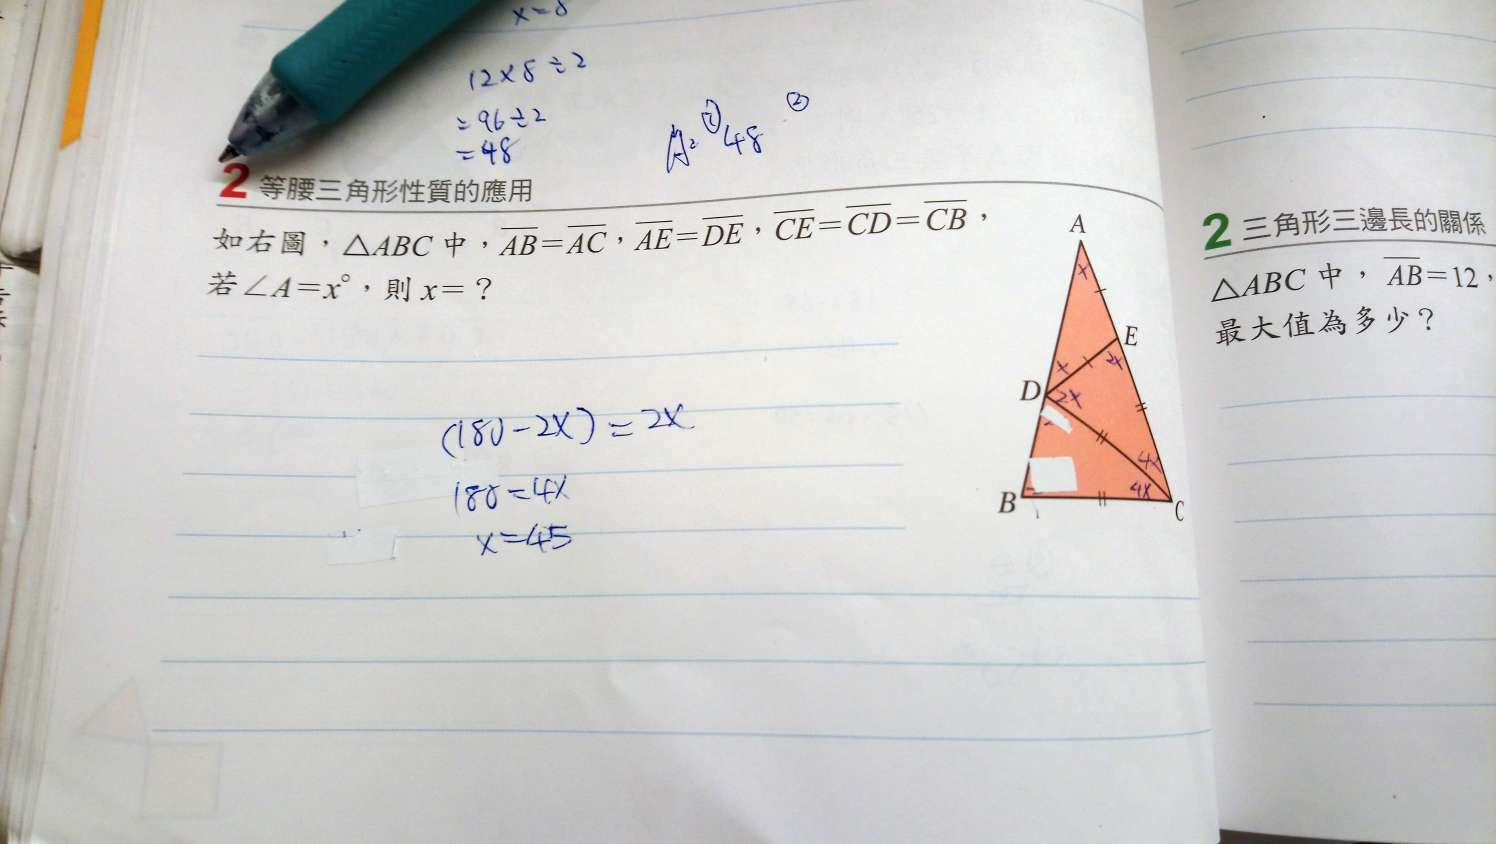 x=8
12×8÷2
=96÷2
=48
48
①
②
2 等腰三角形性質的應用
如右圖，△ABC 中，AB=AC，AE=DE，CE=CD=CB，
若∠A=x°，則 x=？
A
x
E
x
2x
D
2x
4x
4x
B
C
(180-2x)=2x
180=4x
x=45
2 三角形三邊長的關係
△ABC 中，AB=12，
最大值為多少？